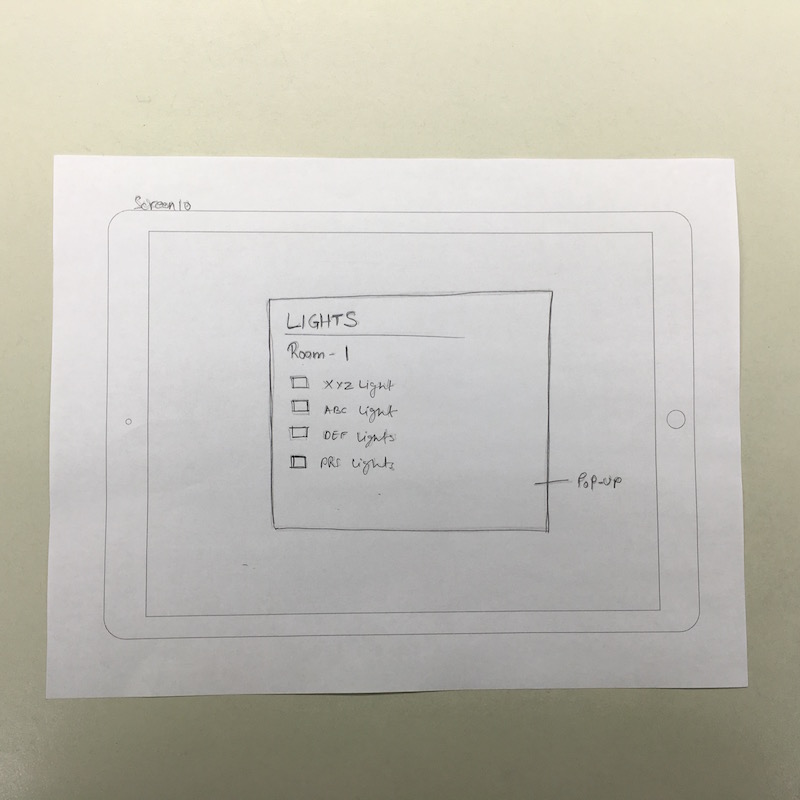 Screen 10
LIGHTS
Room - 1
XYZ Light
ABC Light
DEF Lights
Lights
POP-UP